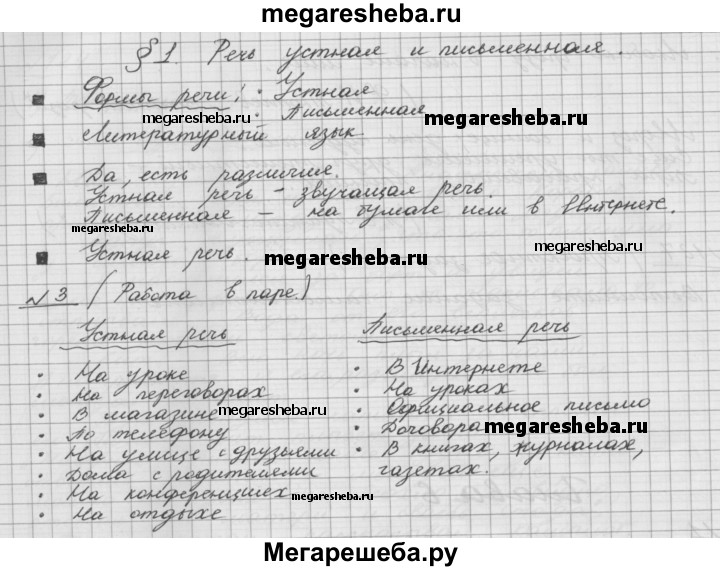 megaresheba.ru
§1. Речь устная и письменная.
Формы речи: • Устная
• Письменная
megaresheba.ru
Литературный язык
Да, есть различия.
Устная речь – звучащая речь.
Письменная – на бумаге или в Интернете.
megaresheba.ru
megaresheba.ru
Устная речь.
megaresheba.ru
№3 (Работа в паре.)
Устная речь Письменная речь
• На уроке • В Интернете
• На переговорах • На уроках
• В магазине • Официальное письмо
megaresheba.ru
• По телефону • Договора
megaresheba.ru
• На улице с друзьями • В книгах, журналах,
• Дома с родителями газетах.
• На конференциях
megaresheba.ru
• На отдыхе
Мегарешеба.ру